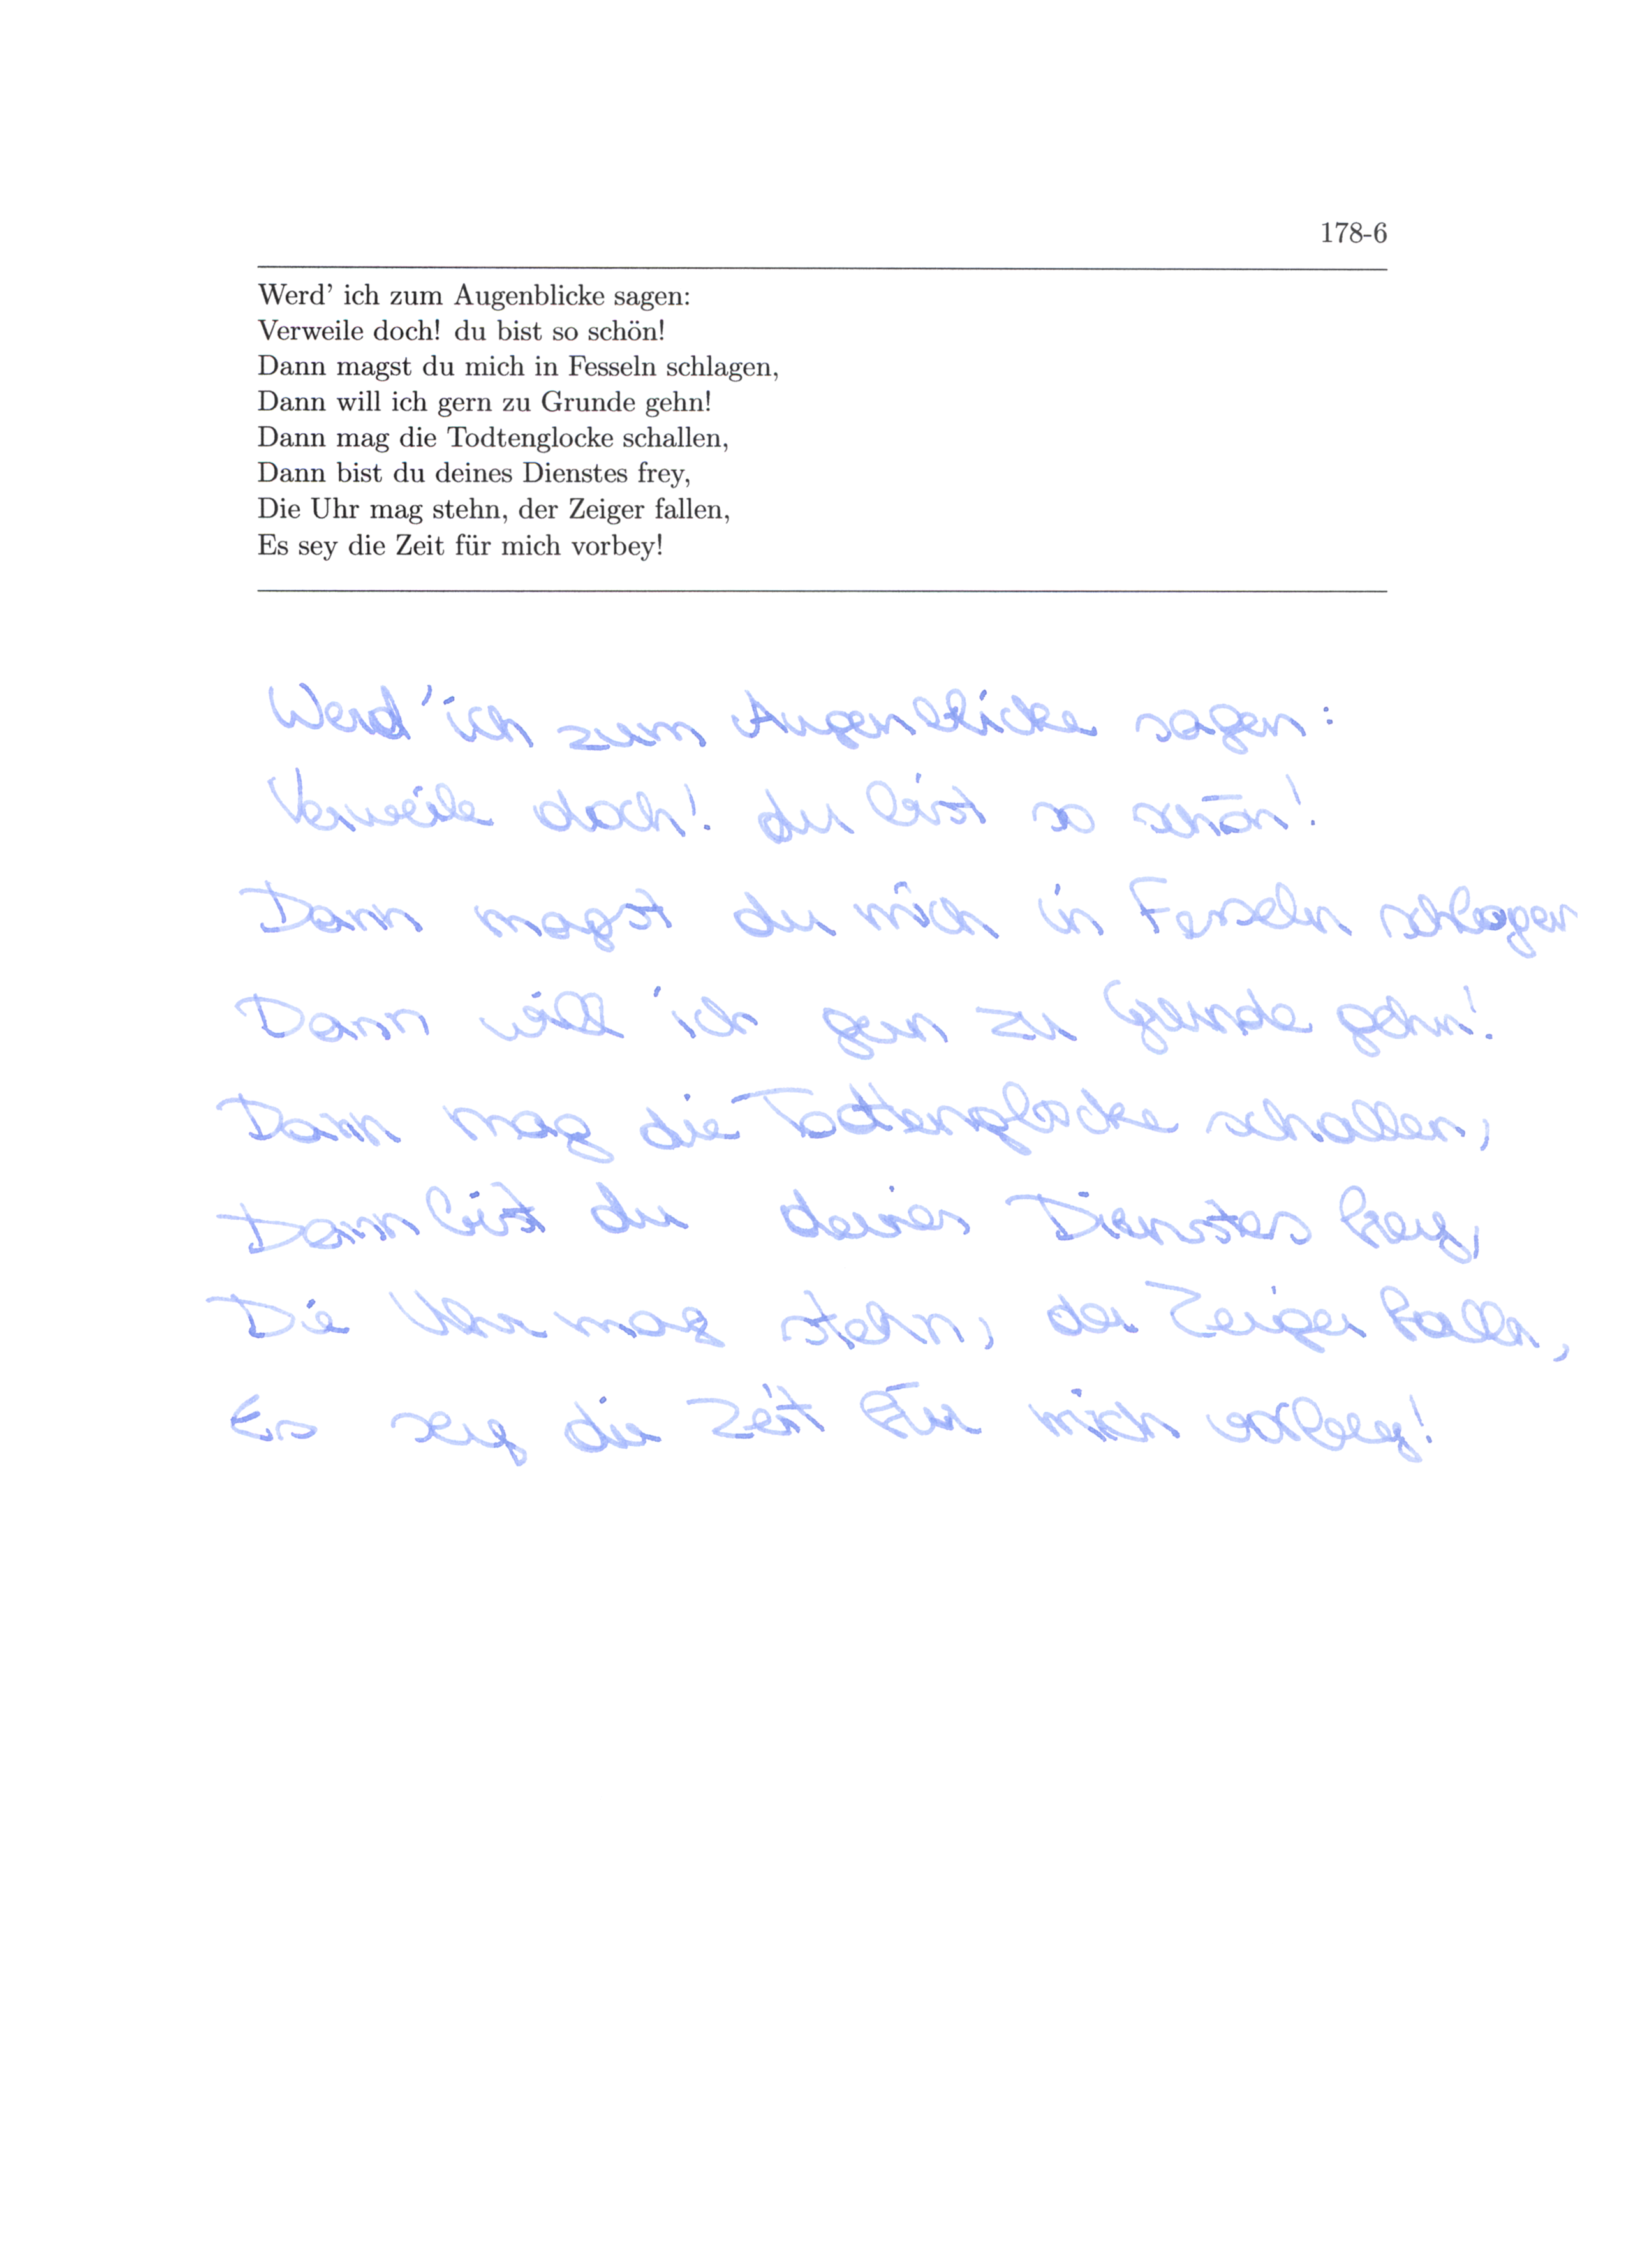 178-6
Werd' ich zum Augenblicke sagen:
Verweile doch! du bist so schön!
Dann magst du mich in Fesseln schlagen,
Dann will ich gern zu Grunde gehn!
Dann mag die Todtenglocke schallen,
Dann bist du deines Dienstes frey,
Die Uhr mag stehn, der Zeiger fallen,
Es sey die Zeit für mich vorbey!
Werd' ich zum Augenblicke sagen:
Verweile doch! du bist so schön!
Dann magst du mich in Fesseln schlagen
Dann will ich gern zu Grunde gehn!
Dann mag die Todtenglocke schallen,
Dann bist du deines Dienstes frey,
Die Uhr mag stehn, der Zeiger fallen,
Es sey die Zeit für mich vorbey!